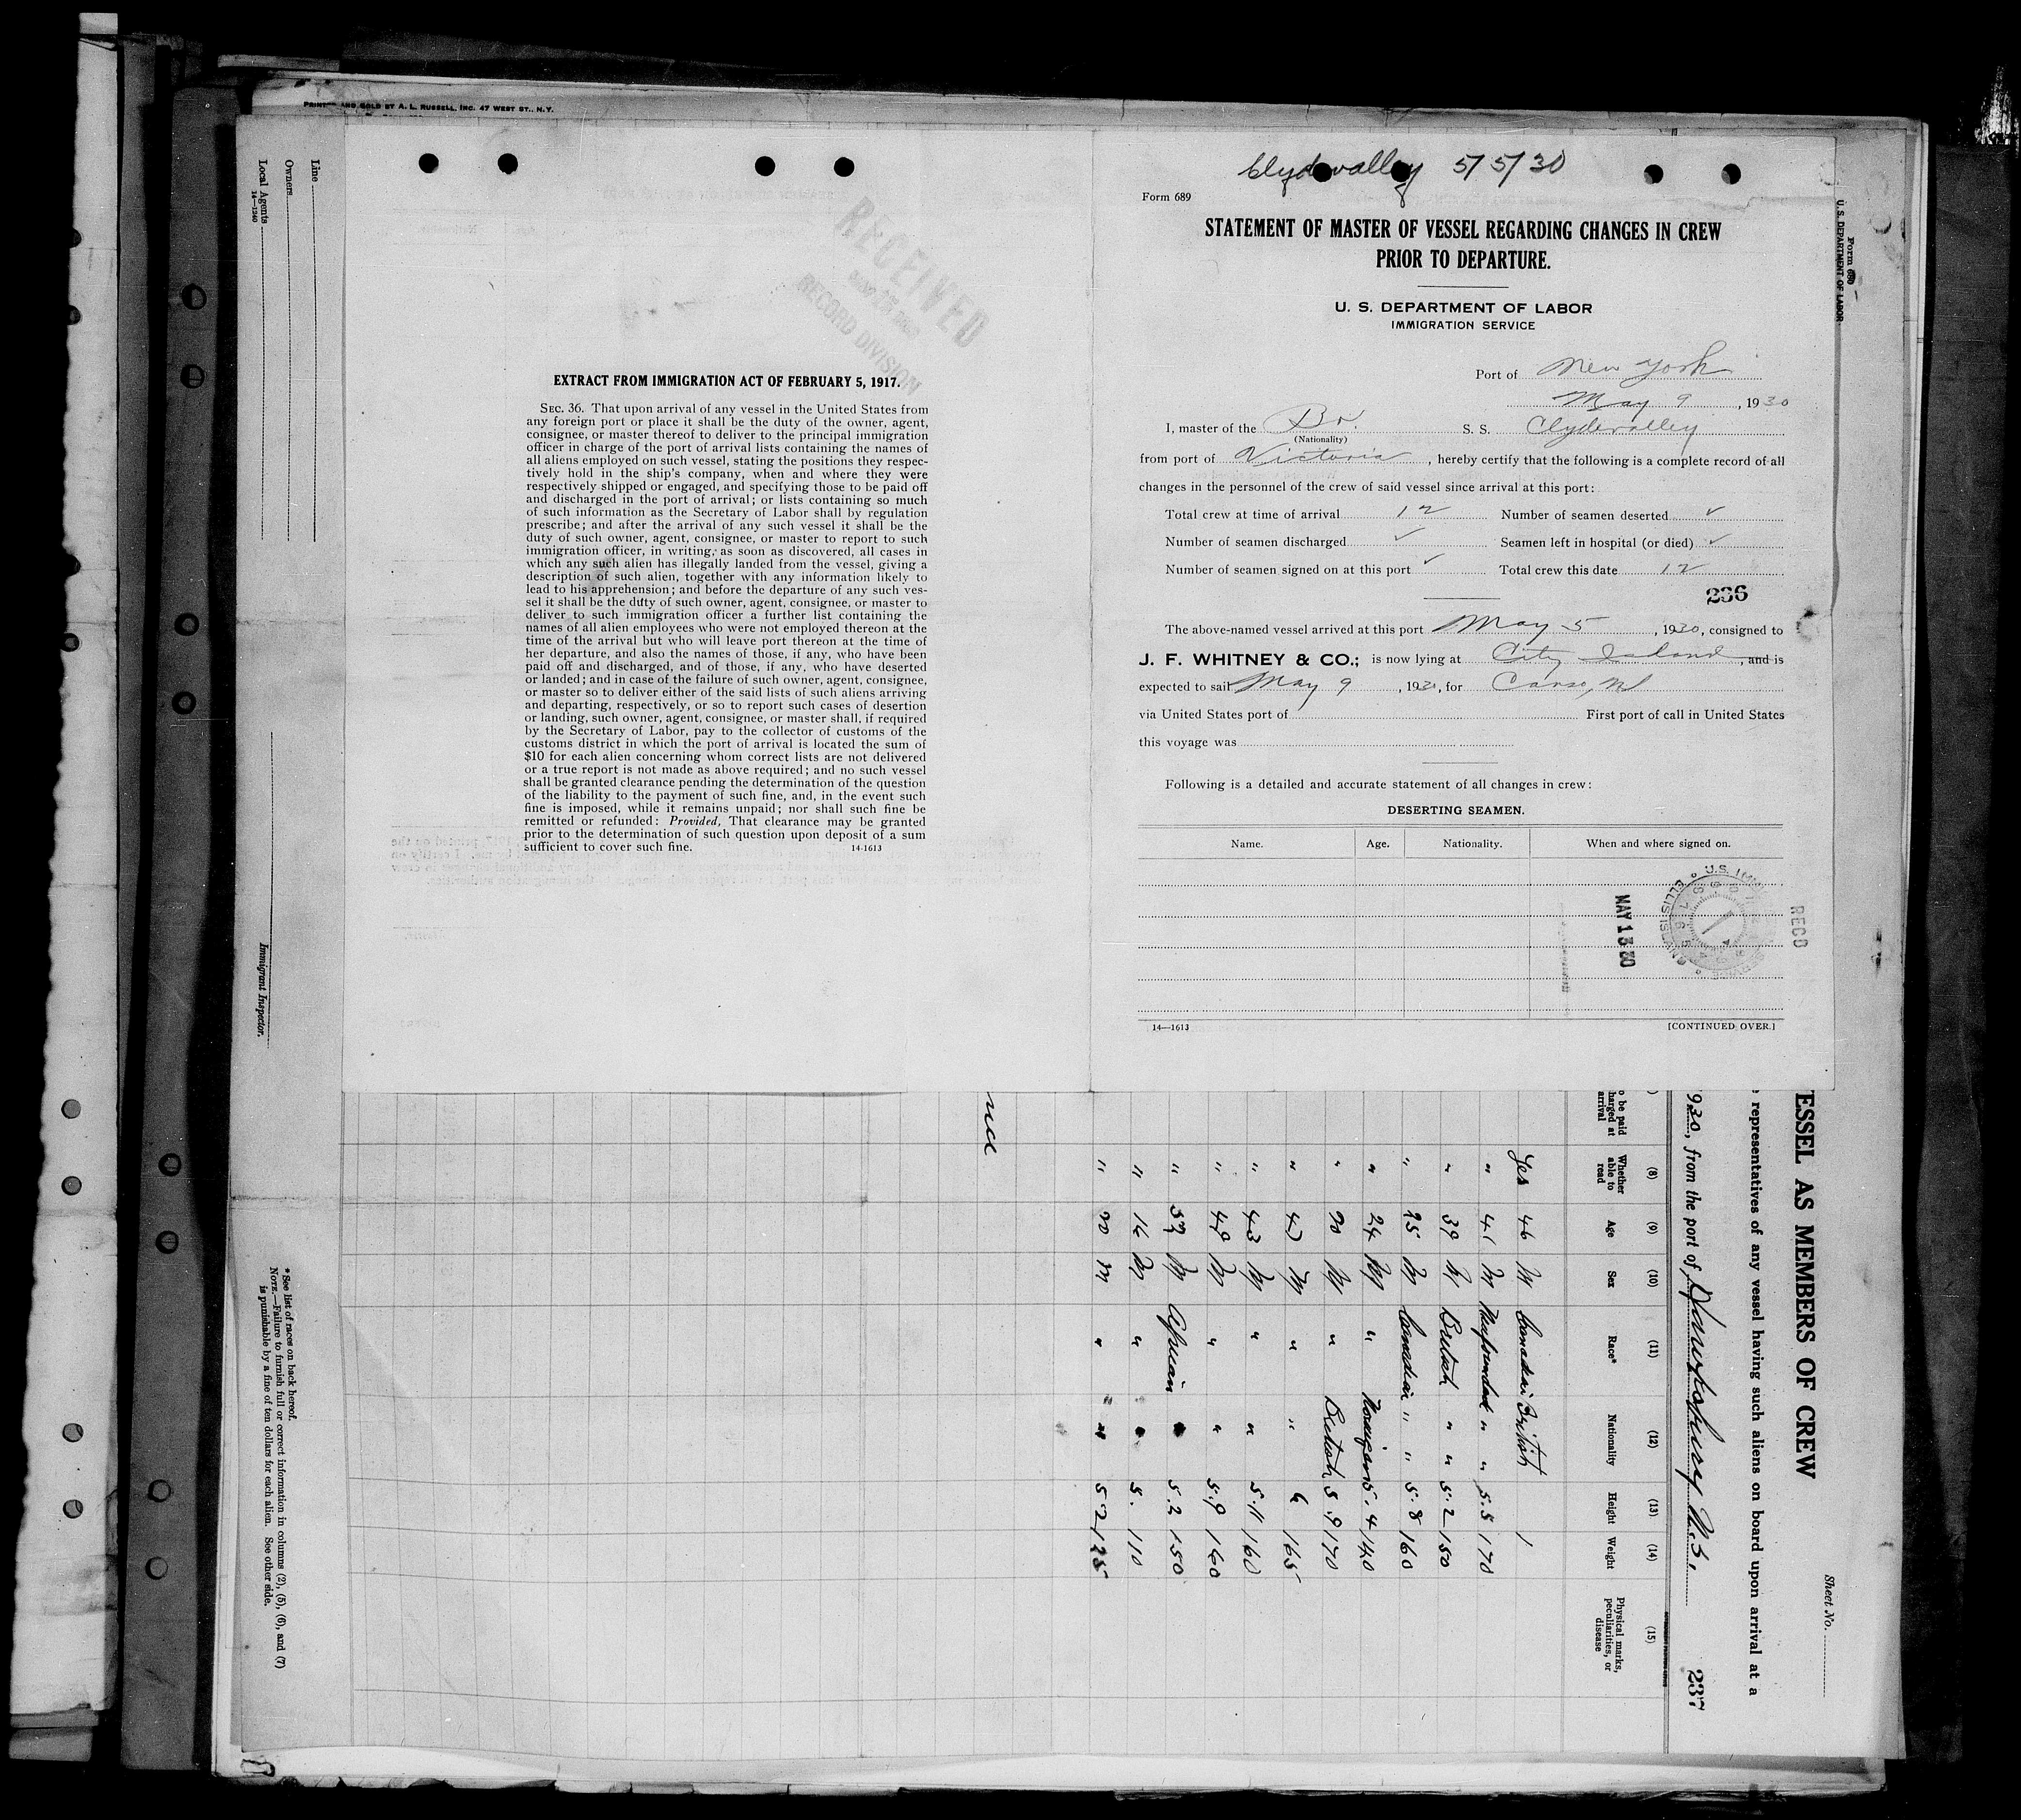 PRINTED AND SOLD BY A. L. RUSSELL, INC. 47 WEST ST., N. Y.
Line
Owners
Local Agents
14—1240
Immigrant Inspector.
* See list of races on back hereof.
NOTE.—Failure to furnish full or correct information in columns (2), (5), (6), and (7)
is punishable by a fine of ten dollars for each alien. See other side.
RECEIVED
RECORD DIVISION
EXTRACT FROM IMMIGRATION ACT OF FEBRUARY 5, 1917.
SEC. 36. That upon arrival of any vessel in the United States from
any foreign port or place it shall be the duty of the owner, agent,
consignee, or master thereof to deliver to the principal immigration
officer in charge of the port of arrival lists containing the names of
all aliens employed on such vessel, stating the positions they respec-
tively hold in the ship's company, when and where they were
respectively shipped or engaged, and specifying those to be paid off
and discharged in the port of arrival; or lists containing so much
of such information as the Secretary of Labor shall by regulation
prescribe; and after the arrival of any such vessel it shall be the
duty of such owner, agent, consignee, or master to report to such
immigration officer, in writing, as soon as discovered, all cases in
which any such alien has illegally landed from the vessel, giving a
description of such alien, together with any information likely to
lead to his apprehension; and before the departure of any such ves-
sel it shall be the duty of such owner, agent, consignee, or master to
deliver to such immigration officer a further list containing the
names of all alien employees who were not employed thereon at the
time of the arrival but who will leave port thereon at the time of
her departure, and also the names of those, if any, who have been
paid off and discharged, and of those, if any, who have deserted
or landed; and in case of the failure of such owner, agent, consignee,
or master so to deliver either of the said lists of such aliens arriving
and departing, respectively, or so to report such cases of desertion
or landing, such owner, agent, consignee, or master shall, if required
by the Secretary of Labor, pay to the collector of customs of the
customs district in which the port of arrival is located the sum of
$10 for each alien concerning whom correct lists are not delivered
or a true report is not made as above required; and no such vessel
shall be granted clearance pending the determination of the question
of the liability to the payment of such fine, and, in the event such
fine is imposed, while it remains unpaid; nor shall such fine be
remitted or refunded: Provided, That clearance may be granted
prior to the determination of such question upon deposit of a sum
sufficient to cover such fine. 14-1613
Clydevalley 5/5/30
Form 689
STATEMENT OF MASTER OF VESSEL REGARDING CHANGES IN CREW
PRIOR TO DEPARTURE.
U. S. DEPARTMENT OF LABOR
IMMIGRATION SERVICE
Port of New York
May 9, 1930
I, master of the Br. S. S. Clydevalley
(Nationality)
from port of Victoria, hereby certify that the following is a complete record of all
changes in the personnel of the crew of said vessel since arrival at this port:
Total crew at time of arrival 12 Number of seamen deserted ✓
Number of seamen discharged ✓ Seamen left in hospital (or died) ✓
Number of seamen signed on at this port ✓ Total crew this date 12
236
The above-named vessel arrived at this port May 5, 1930, consigned to
J. F. WHITNEY & CO.; is now lying at City Island, and is
expected to sail May 9, 1930, for Canso, N
via United States port of First port of call in United States
this voyage was
Following is a detailed and accurate statement of all changes in crew:
DESERTING SEAMEN.
Name. Age. Nationality. When and where signed on.
MAY 13 30
U.S. IMM
ELLIS ISLAND
RECD
14—1613 [CONTINUED OVER.]
Form 689
U. S. DEPARTMENT OF LABOR
Sheet No.
ESSEL AS MEMBERS OF CREW
representatives of any vessel having such aliens on board upon arrival at a
930, from the port of Hawkesbury N.S.
237
(8) (9) (10) (11) (12) (13) (14) (15)
o be paid harged at arrival Whether able to read Age Sex Race* Nationality Height Weight Physical marks, peculiarities, or disease
Yes 46 M Canadian British
" 41 M Newfoundland " " 5.5 170
" 39 M British " " 5.2 150
" 25 M Canadian " " 5.8 160
" 24 M " Norwegian 5.4 140
" 20 M " British 5.9 170
" 47 M " " 6 165
" 43 M " " 5.11 160
" 49 M " " 5.9 160
" 52 M African " 5.2 150
" 16 M " " 5. 110
" 20 M " " 5 2 125